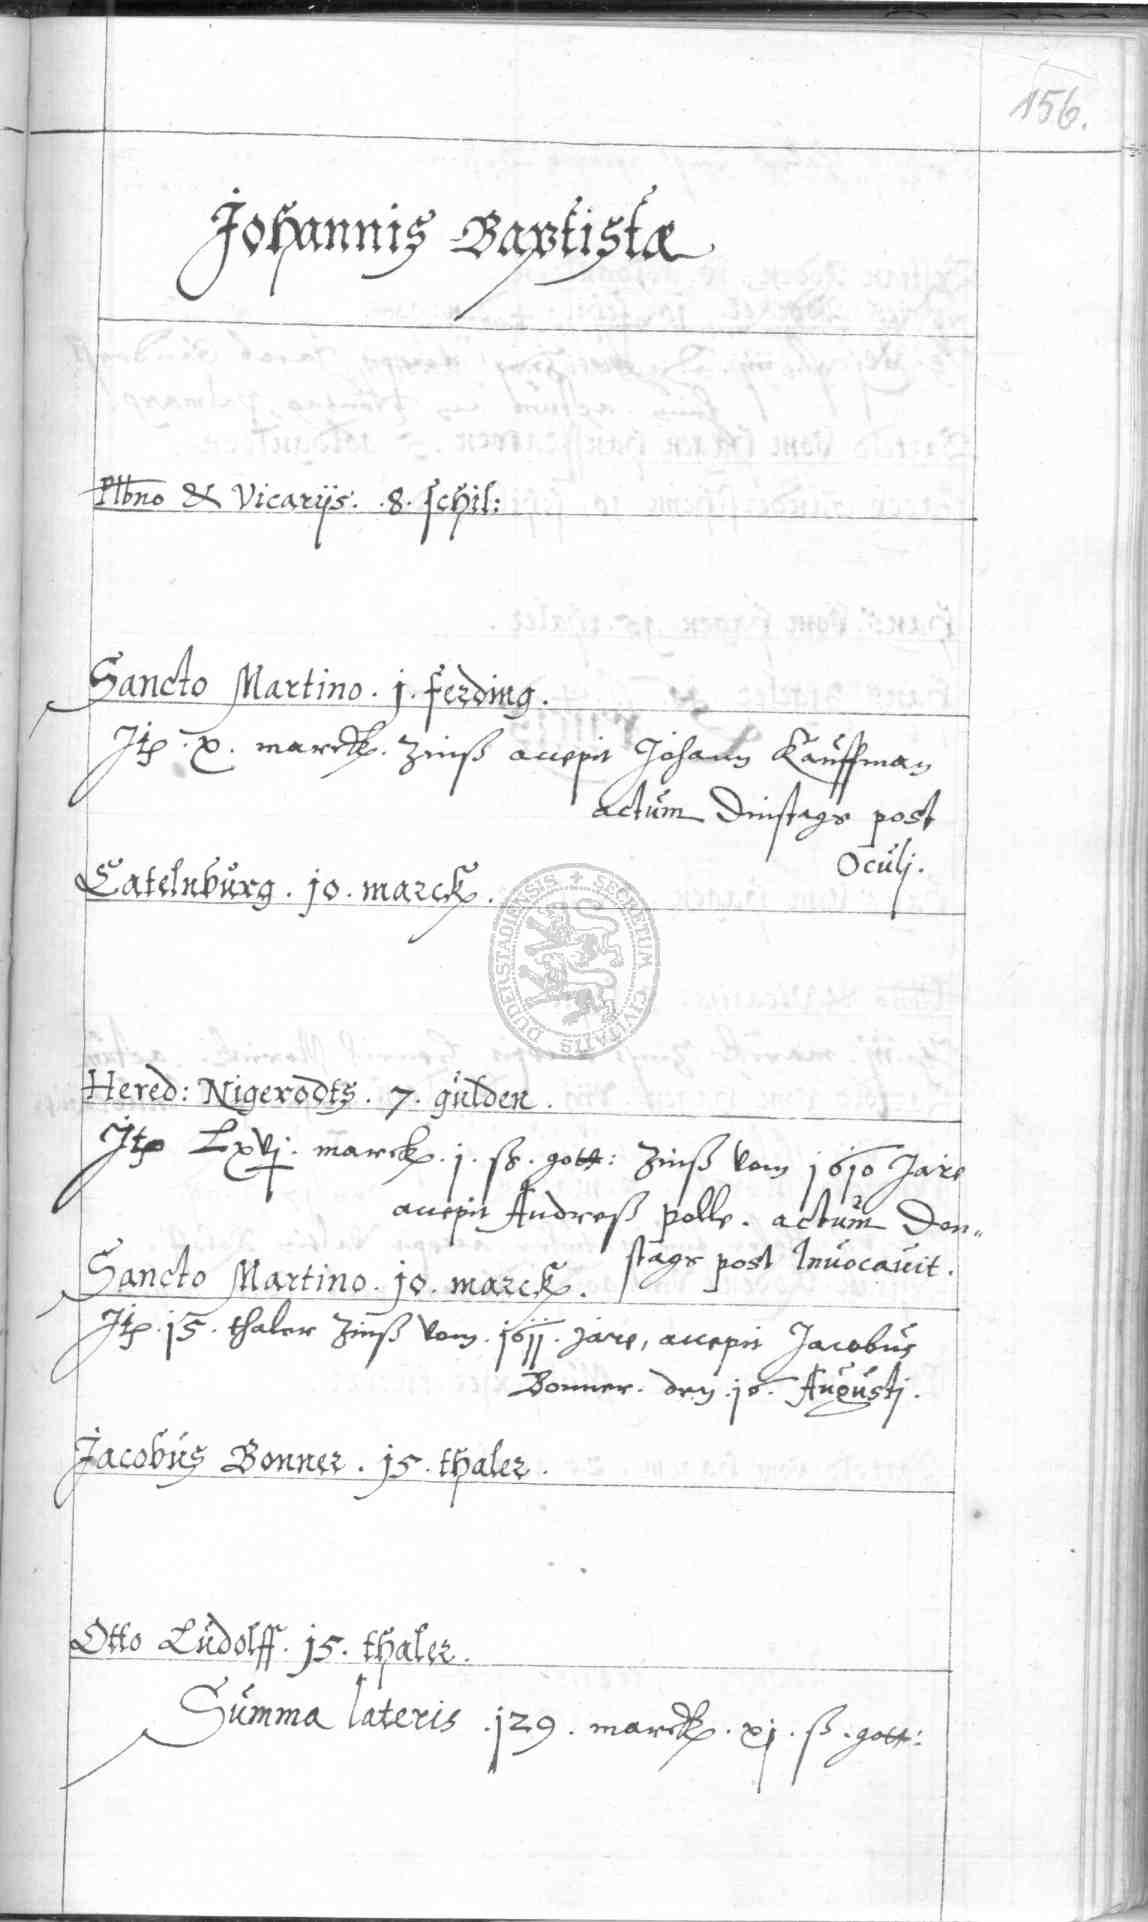 156.
Johannis Baptistæ
Plbno & Vicarijs. .8. schil:
Sancto Martino. j. ferding.
Jtp. x. marck. Zinß accepit Johann Kauffman
actum Dinstags post
Oculj.
Catelnburg. jo. marck.
SECRETUM CIVITATIS DUDERSTADIENSIS
Hered: Nigerodts. 7. gulden.
Jtp Lxvj. marck. j. ß. gott: Zinß vom j6jo Jare
accepit Andreß polle. actum Don„
stags post Invocavit.
Sancto Martino. jo. marck.
Jtp. j5. thaler Zinß vom. j6jj. jare, accepit Jacobus
Bonner. den j6. Augustj.
Jacobus Bonner. j5. thaler.
Otto Ludolff. j5. thaler.
Summa lateris .j29. marck. xj. ß. gott: